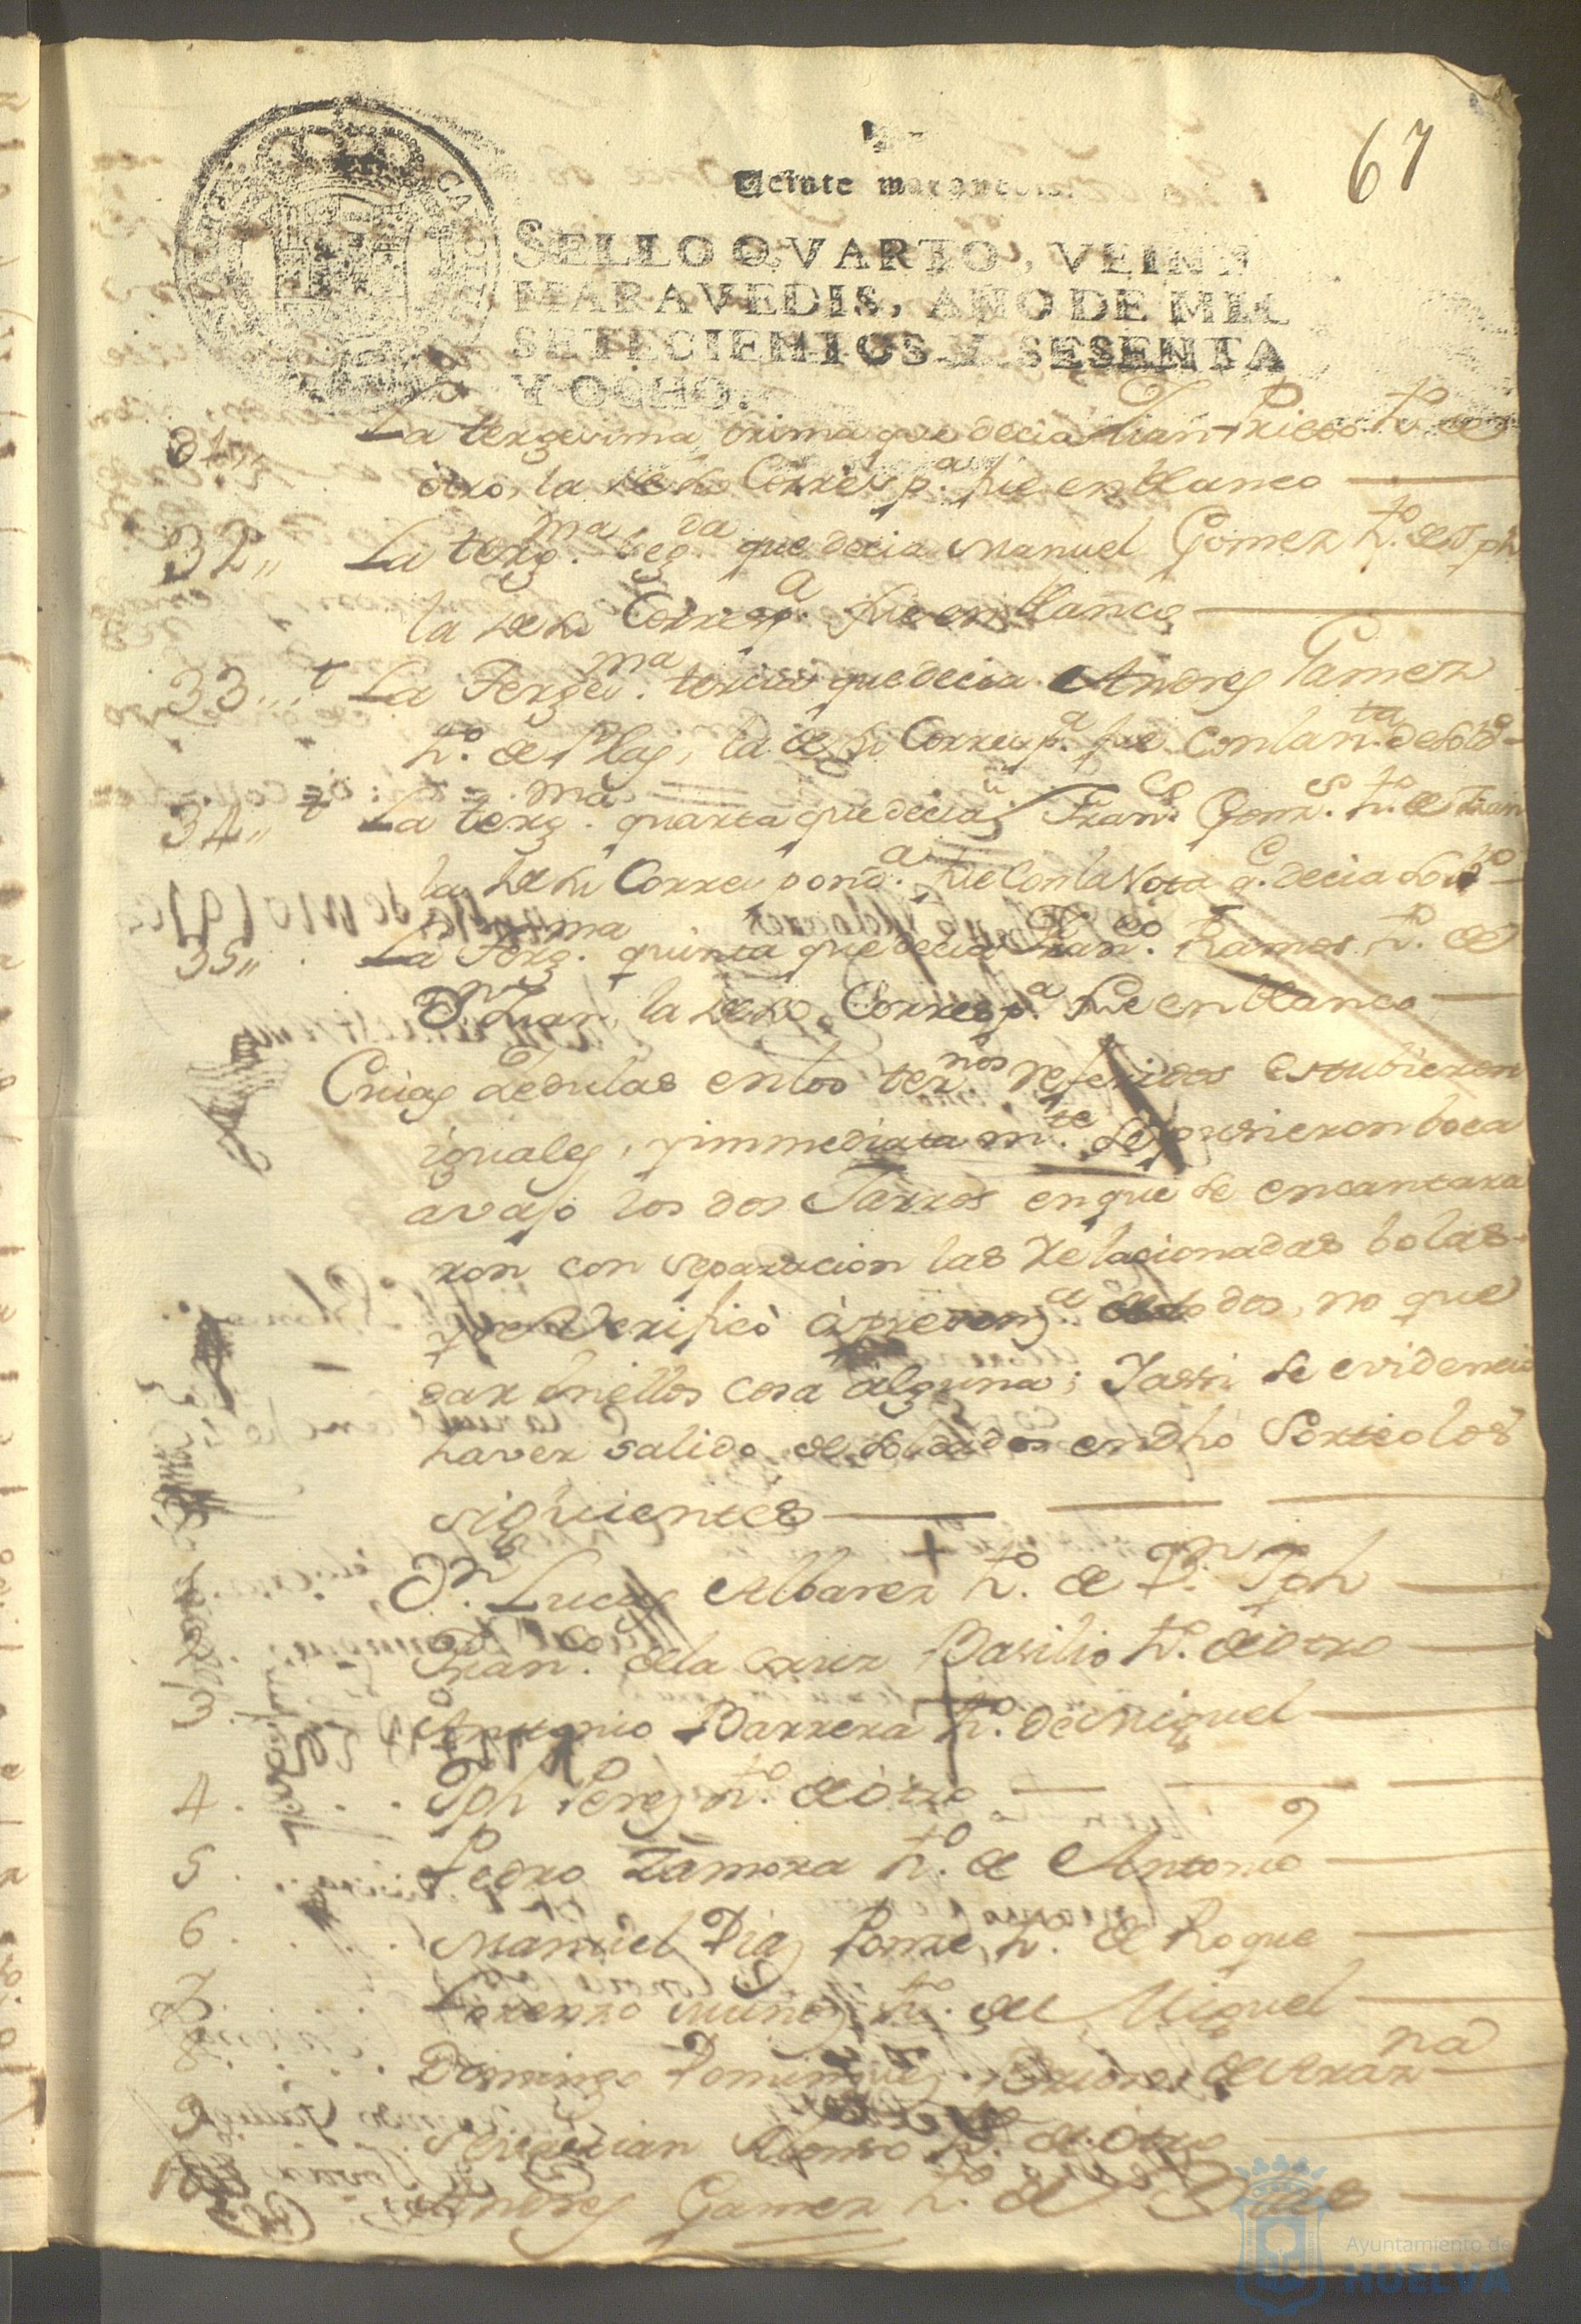 67
Veinte maravedis.
SELLO QVARTO, VEINT
MARAVEDIS, AÑO DE MIL
SETECIENTOS Y SESENTA
Y OCHO.
31,, La tergesima prima que decia Juan Prieto h.º de
otro, la de su Corresp.ª fue en blanco
32,, La terg.ma seg.da que decia Manuel Gomez h.º de Jph
la de su Corresp.ª fue en blanco
33 La Terge.ma tercia que decia Andres Gamez
h.º de Blas, la de su Corresp.ª fue con la n.ta de sold.º
34,, La terg.ma quarta que decia Fran.co Gonz.s h.º de Juan
la de su Correspond.ª fue con la Nota q.e decia sold.º
35,, La Terg.ma quinta que decia Fran.co Ramos h.º de
Juan, la de su Corresp.ª fue en blanco
Cuias Zedulas en los ter.nos referidos estubieron
iguales, y immediatam.te se pusieron boca
avajo los dos Jarros en que se encantara
ron con separacion las relacionadas bolas
y se verificò à presenz.ª de todos, no que
dar en ellos cosa alguna; Y assi se evidencio
haver salido de soldados en dho Sorteo los
siguientes
D.n Lucas Albarez h.º de D.n Jph
Fran.co de la Cruz Basilio h.º de otro
3 Antonio Barrera h.º de Miguel
4 Jph Perez h.º de otro
5 Pedro Zamora h.º de Antonio
6 Manuel Diaz Ponze h.º de Roque
7 Lorenzo Muñoz h.º de Miguel
8 Domingo Dominguez
9 Sevastian Alonso h.º de otro
10 Andres Gamez h.º de Blas
Ayuntamiento de
HUELVA